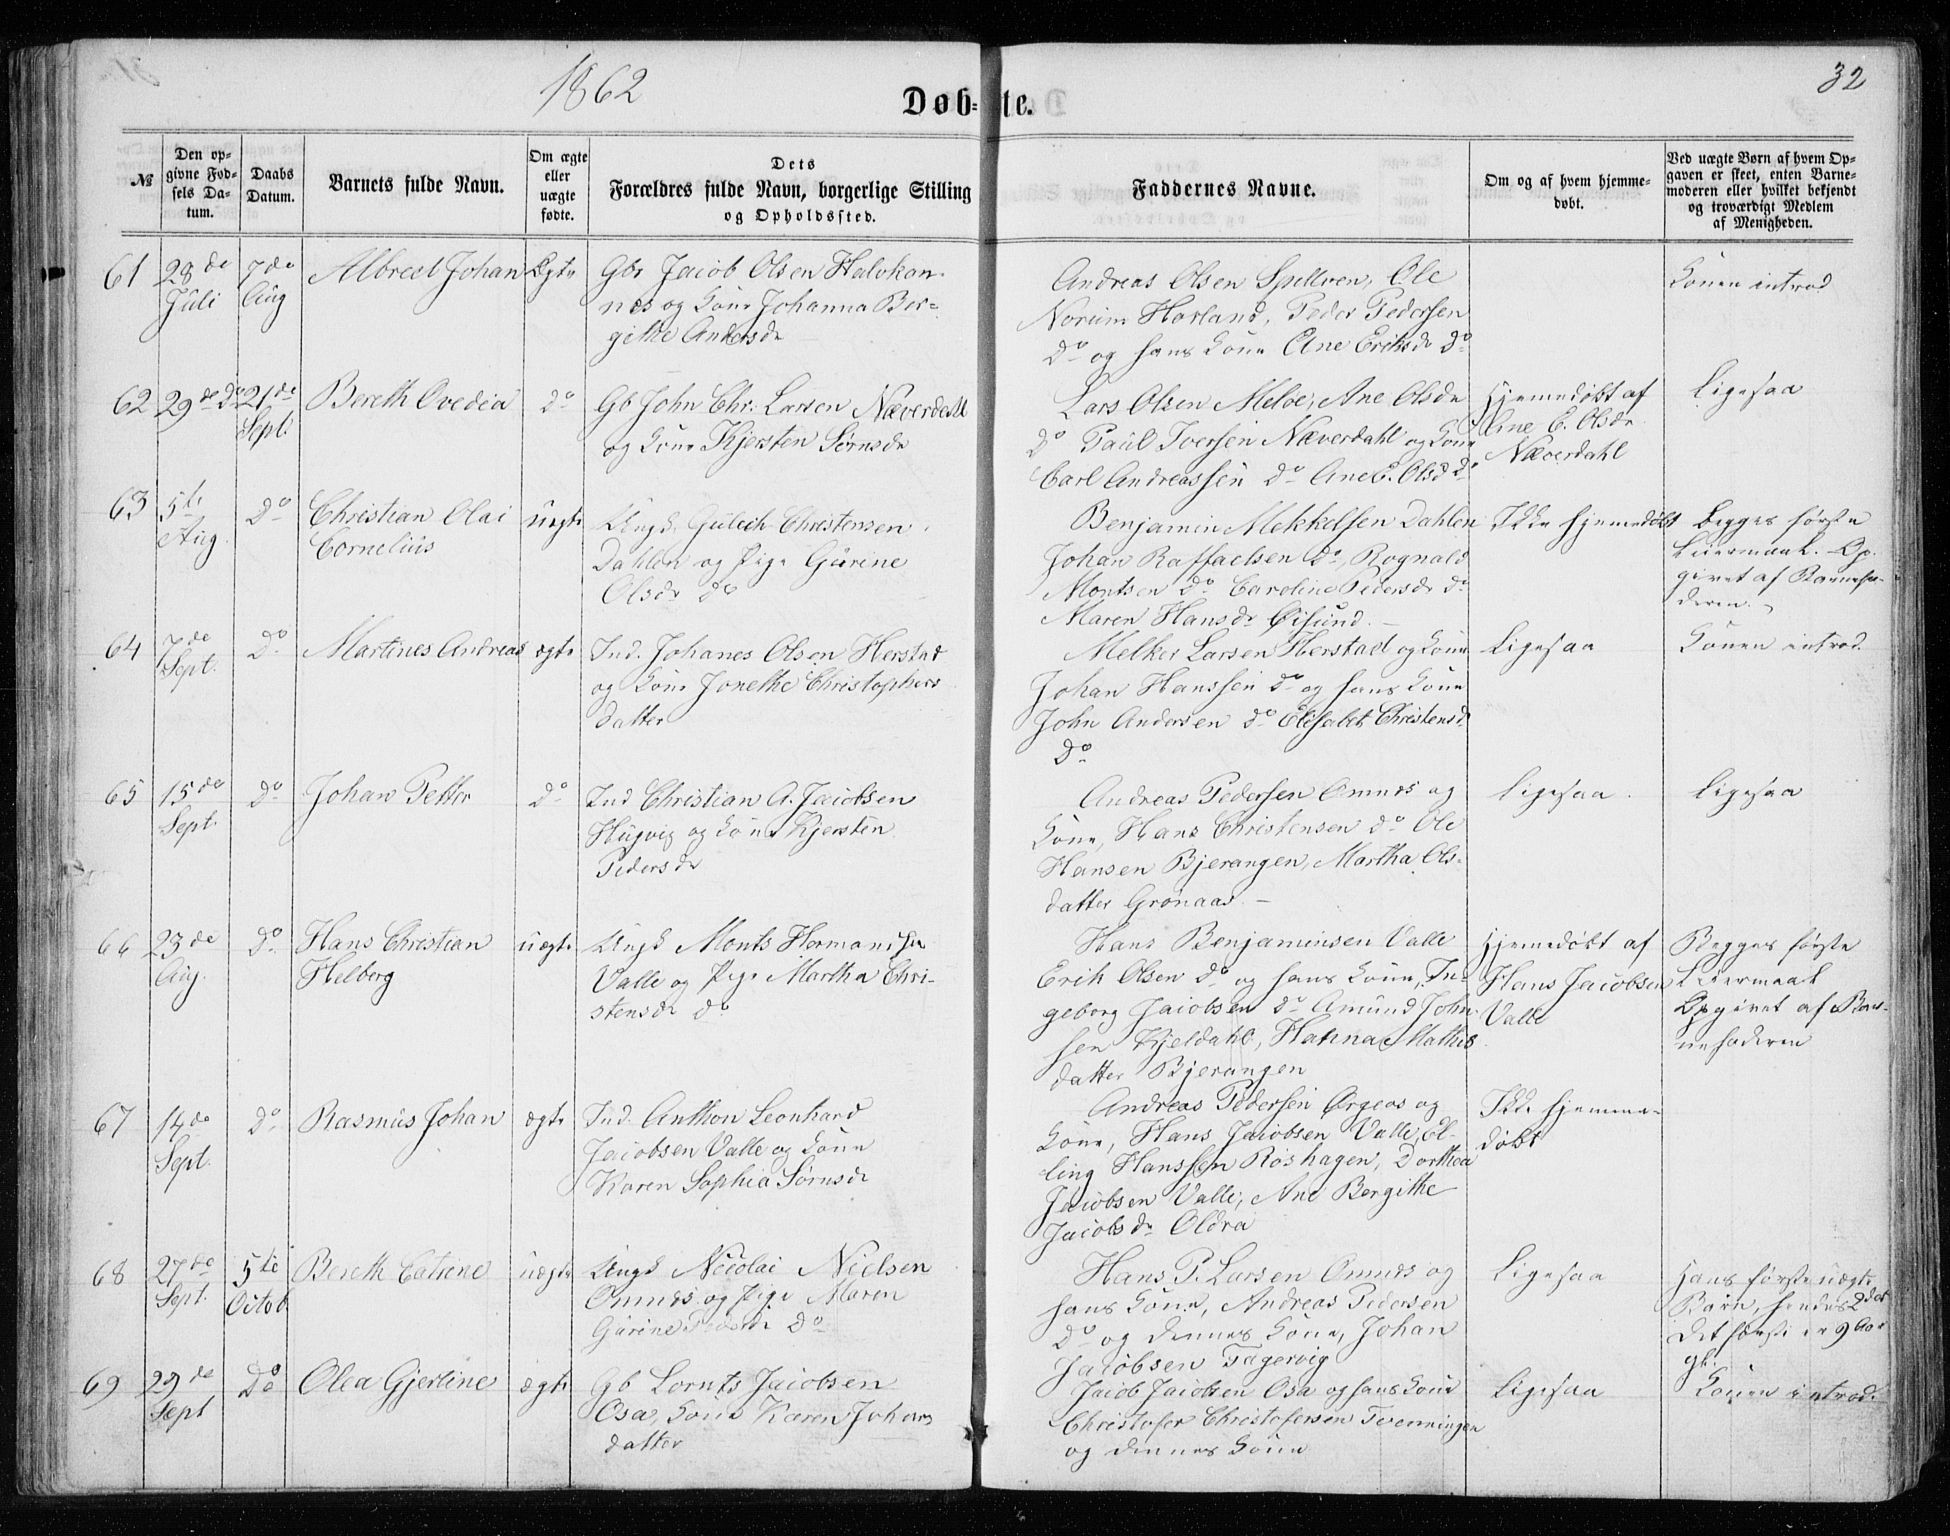 1862
32
Døb-te.
№
Den op-
givne Fød-
sels Da-
tum.
Daabs
Datum.
Barnets fulde Navn.
Om ægte
eller
uægte
fødte.
Dets
Forældres fulde Navn, borgerlige Stilling
og Opholdssted.
Faddernes Navne.
Om og af hvem hjemme-
døbt.
Ved uægte Børn af hvem Op-
gaven er skeet, enten Barne-
moderen eller hvilket bekjendt
og troværdigt Medlem
af Menigheden.
61
28de
Juli
7de
Aug
Albrect Johan
Ægte
Gbr Jacob Olsen Halvkan-
nes og Kone Johanna Ber-
githe Andersdr
Andreas Olsen Spillven, Ole
Norum Horland, Peder Pedersen
Do og hans Kone Ane Eriksdr Do
Konen introd
62
29de Do
21de
Sept.
Bereth Ovedia
Do
Gb John Chr. Larsen Næverdahl
og Kone Kjersten Sørnsdr
Lars Olsen Meløe, Ane Olsdr
Do Paul Iversen Næverdahl og Kone
Carl Andreassen Do Ane E. Olsd Do
Hjemedøbt af
Ane E. Olsdr
Næverdahl
Ligesaa
63
5te
Aug.
Do
Christian Olai
Cornelius
uægte
Ungk. Gulich Christensen
Dahlen og Pige Gurine
Olsdr Do
Benjamin Mekkelsen Dahlen
Johan Raffaelsen Do, Rognald
Montsen Do Caroline Pedersdr Do
Maren Hansdr Øisund.
Ikke hjemmedøbt
Begges første
Leiermaal. Op-
givet af Barnefa-
deren.
64
7de
Sept.
Do
Martines Andreas
ægte
Ind. Johanes Olsen Herstad
og Kone Jonethe Christophers
datter
Melker Larsen Herstad og Kone
Johan Hanssen Do og hans Kone
John Andersen Do Elisabet Christensd
Do
Ligesaa
Konen introd
65
15de
Sept.
Do
Johan Petter
Do
Ind Christian A. Jacobsen
Hugvig og Kone Kjersten
Pedersdr
Andreas Pedersen Onnes og
Kone, Hans Christensen Do Ole
Hansen Bjerangen, Martha Ols-
datter Grønaas
Ligesaa
Ligesaa
66
23de
Aug.
Do
Hans Christian
Helberg
uægte
Ungk Monts Hermandsen
Valle og Pige Martha Chri-
stensdr Do
Hans Benjaminsen Valle
Erik Olsen Do og hans Kone, In-
geborg Jacobsen Do Amund John-
sen Kjeldahl, Hanna Mathis
datter Bjerangen
Hjemedøbt af
Hans Jacobsen
Valle
Begges første
Leiermaal
Opgivet af Bar-
nefaderen
67
14de
Sept.
Do
Rasmus Johan
ægte
Ind. Anthon Leonhard
Jacobsen Valle og Kone
Karen Sophia Sørnsdr
Andreas Pedersen Ørgeos og
Kone, Hans Jacobsen Valle, El-
ling Hanssen Røshagen, Dorthea
Jacobsen Valle, Ane Bergithe
Jacobsdr Oldra
Ikke hjemme-
døbt
68
27de
Sept.
5te
Octob
Bereth Catrine
uægte
Ungk Nicolai Nielsen
Onnes og Pige Maren
Gurine Pedersdr Do
Hans P. Larsen Onnes og
hans Kone, Andreas Pedersen
Do og dennes Kone, Johan
Jacobsen Fagervig
Ligesaa
Hans første uægte
Barn, hendes 2det
det første er 9 Aar
gl.
69
29de
Sept
Do
Olea Gjertine
ægte
Gb Lornts Jacobsen
Osa, Kone Karen Johans
datter
Jacob Jacobsen Osa og hans Kone
Christofer Christofersen Tvenningen
og dennes Kone
Ligesaa
Konen introd.